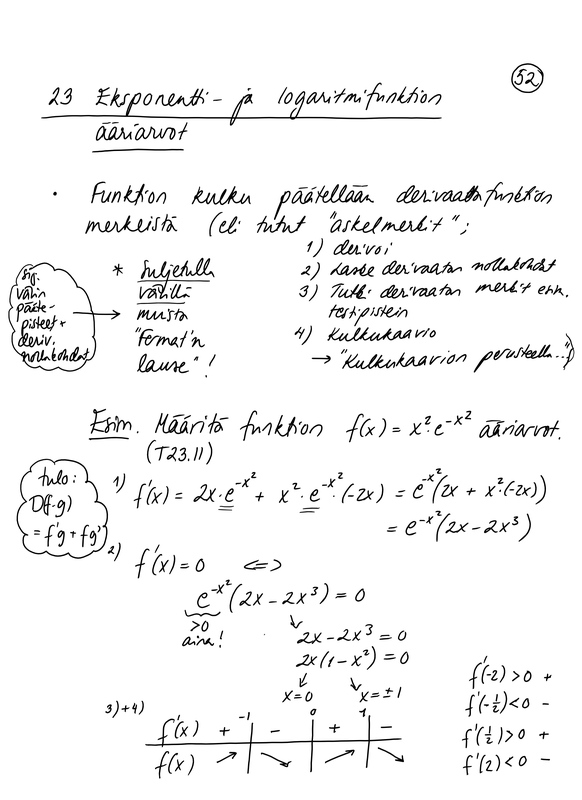 52
23 Eksponentti- ja logaritmifunktion
ääriarvot
• Funktion kulku päätellään derivaattafunktion
merkeistä (eli tutut "askelmerkit";
1) derivoi
2) Laske derivaatan nollakohdat
3) Tutki derivaatan merkit esim.
testipistein
4) Kulkukaavio
→ "Kulkukaavion perusteella...")
* Suljetulla
välillä
muista
"Fermat'n
lause"!
välin
pääte-
pisteet +
deriv.
nollakohdat
Esim. Määritä funktion f(x) = x²·e^{-x²} ääriarvot.
(T23.11)
tulo:
D(f·g)
= f'g + fg'
1) f'(x) = 2x·e^{-x²} + x²·e^{-x²}·(-2x) = e^{-x²}(2x + x²·(-2x))
= e^{-x²}(2x - 2x³)
2) f'(x) = 0 <=>
e^{-x²}(2x - 2x³) = 0
>0
aina!
2x - 2x³ = 0
2x(1 - x²) = 0
x = 0 x = ±1
3)+4)
-1 0 1
f'(x) + - + -
f(x) ↗ ↘ ↗ ↘
f'(-2) > 0 +
f'(-½) < 0 -
f'(½) > 0 +
f'(2) < 0 -